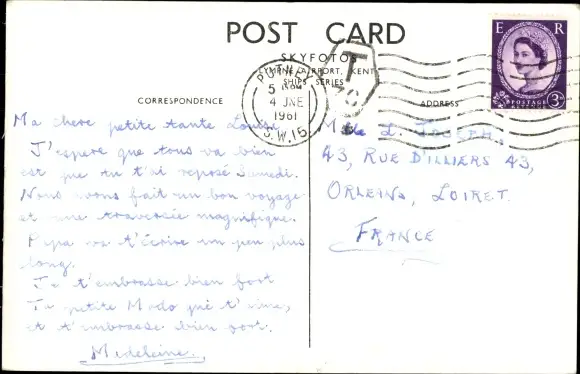 POST CARD
SKYFOTOS
LYMPNE AIRPORT, KENT
SHIPS SERIES
CORRESPONDENCE
ADDRESS
PUTNEY
5 PM
4 JNE
1961
S.W.15
T
E R
POSTAGE
3D
Ma chere petite tante
J'espere que tous va bien
est que tu t'ai reposé Samedi.
Nous avons fait un bon voyage
et une traversée magnifique.
Papa va t'écrire un peu plus
long.
Je t'embrasse bien fort
Ta petite Mado qui t'aime,
et t'embrasse bien fort.
Madeleine.
L. JOSEPH,
43, RUE D'ILLIERS 43,
ORLEANS, LOIRET.
FRANCE